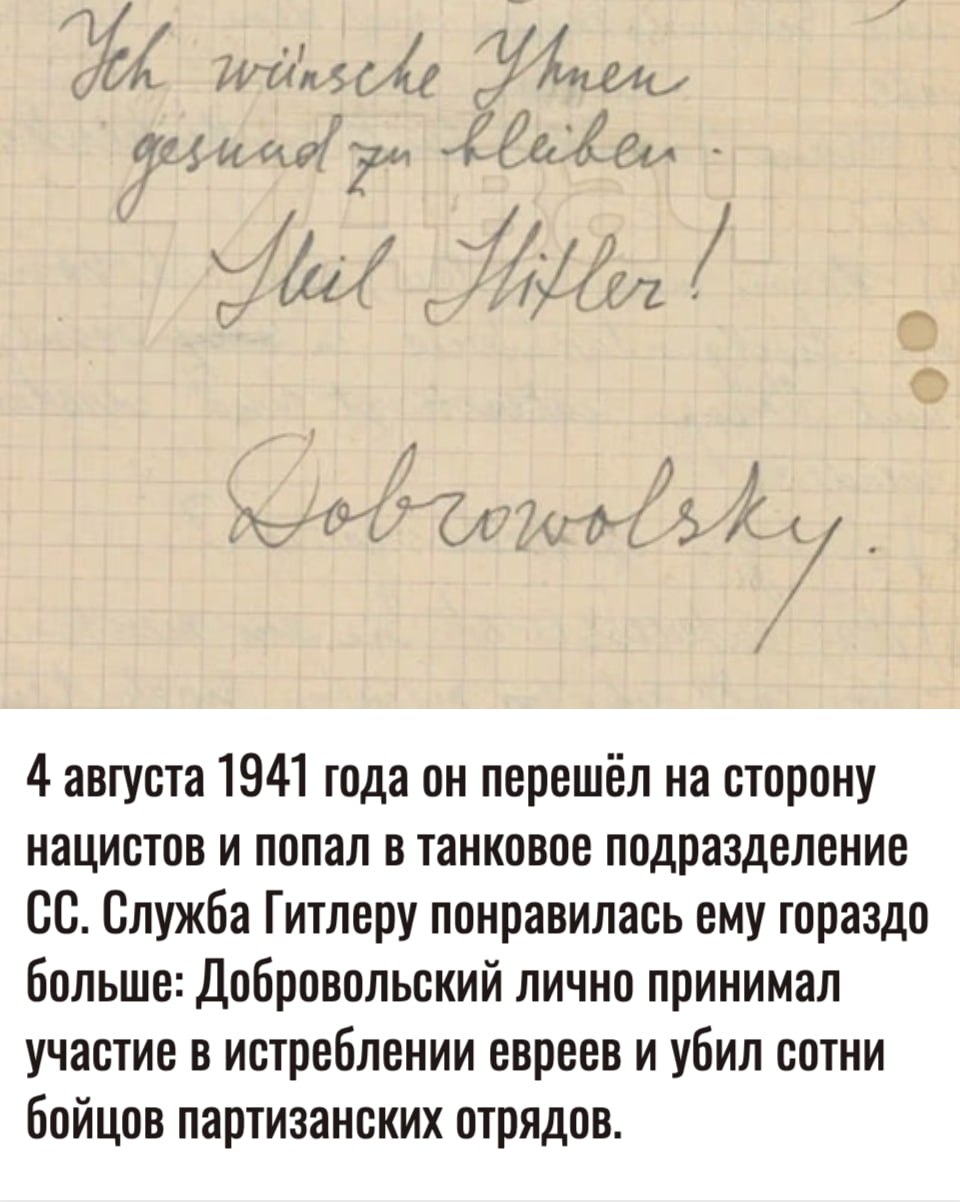 Ich wünsche Ihnen
gesund zu bleiben.
Heil Hitler!
Dobrowolsky.
4 августа 1941 года он перешёл на сторону
нацистов и попал в танковое подразделение
СС. Служба Гитлеру понравилась ему гораздо
больше: Добровольский лично принимал
участие в истреблении евреев и убил сотни
бойцов партизанских отрядов.